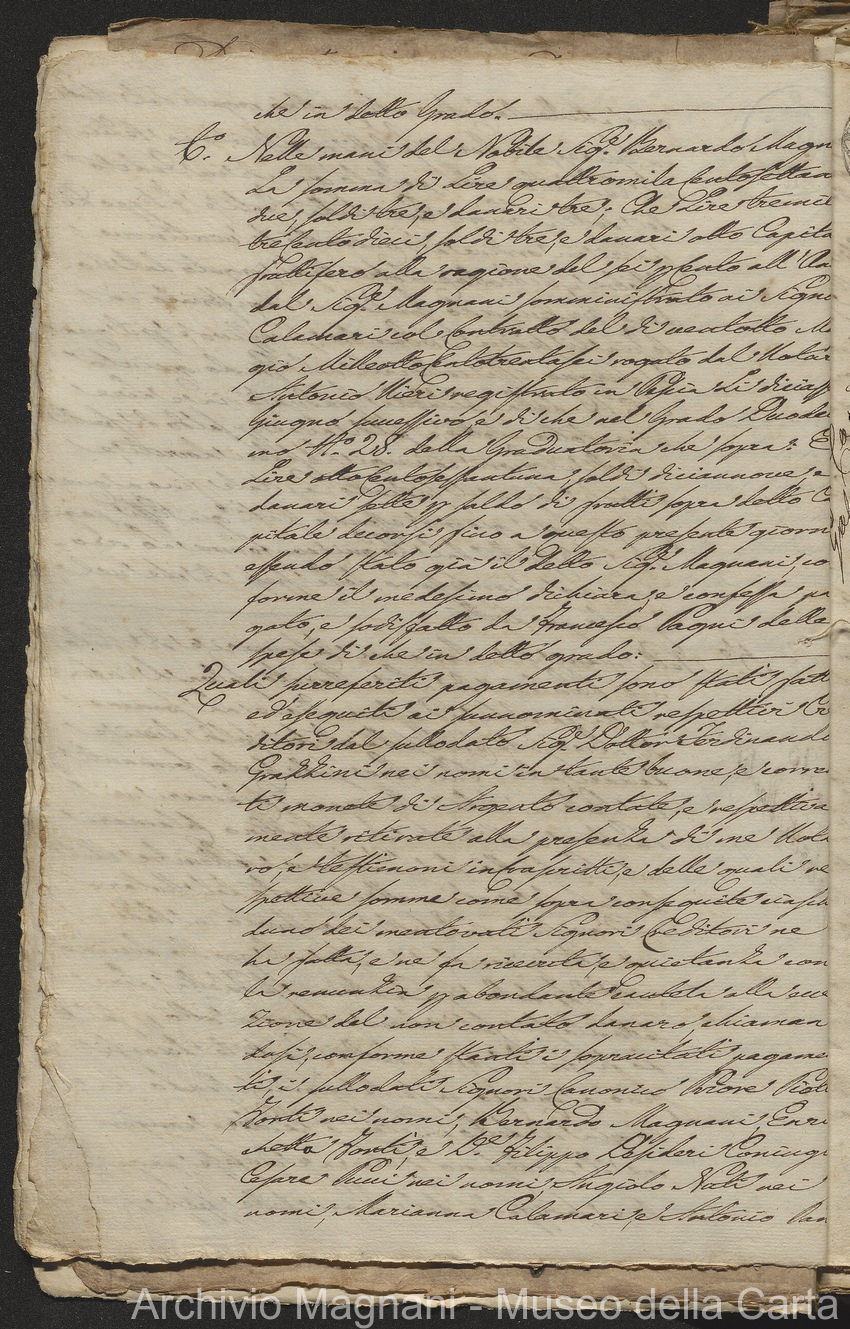 che in detto Grado.
6.° Nelle mani del Nobile Sig.r Bernardo Magn
La somma di Lire quattromila Centosettan
due, soldi tre, e danari tre; Che Lire tremil
trecentodieci, soldi tre, e danari otto Capita
fruttifero alla ragione del sei p Cento all' An
dal Sig.r Magnani somministrato ai Signo
Calamari col Contratto del dì ventotto Ma
gio MilleottoCentotrentasei rogato dal Notar
Antonio Nieri registrato in Pescia Li diciass
Giugno successivo, e di che nel Grado Duode
mo N.° 28. della Graduatoria che sopra: E
Lire ottoCentosessantuna, soldi diciannove, e
danari sette p saldo di frutti sopra detto C
pitale decorsi fino a questo presente giorn
essendo stato già il detto Sig.r Magnani, co
forme il medesimo dichiara, e confessa pa
gato, e sodisfatto da Francesco Pagni delle
spese di che in detto grado:
Quali surreferiti pagamenti sono stati fatt
ed eseguiti ai sunnominati respettivi Cr
ditori dal sullodato Sig.r Dottor Ferdinando
Grazzini nei nomi in tante buone, e corren
ti monete di Argento contate, e respettiva
mente ritirate alla presenza di me Nota
ro, e testimoni infrascritti, e delle quali re
spettive somme come sopra conseguite ciasch
duno dei mentovati Signori Creditori ne
ha fatta, e ne fa ricevuta, e quietanza con
la renunzia p abondante Cautela alla ecce
zione del non contato danaro, chiaman
dosi, conforme stanti i sopracitati pagame
ti, i sullodati Signori Canonico Priore Piet
Fonti nei nomi, Bernardo Magnani, Enri
chetta Fonti, e D.r Filippo Desideri Coniugi
Cesare Pucci nei nomi, Angiolo Nuti nei
nomi, Marianna Calamari, e Antonio Pan
Archivio Magnani - Museo della Carta